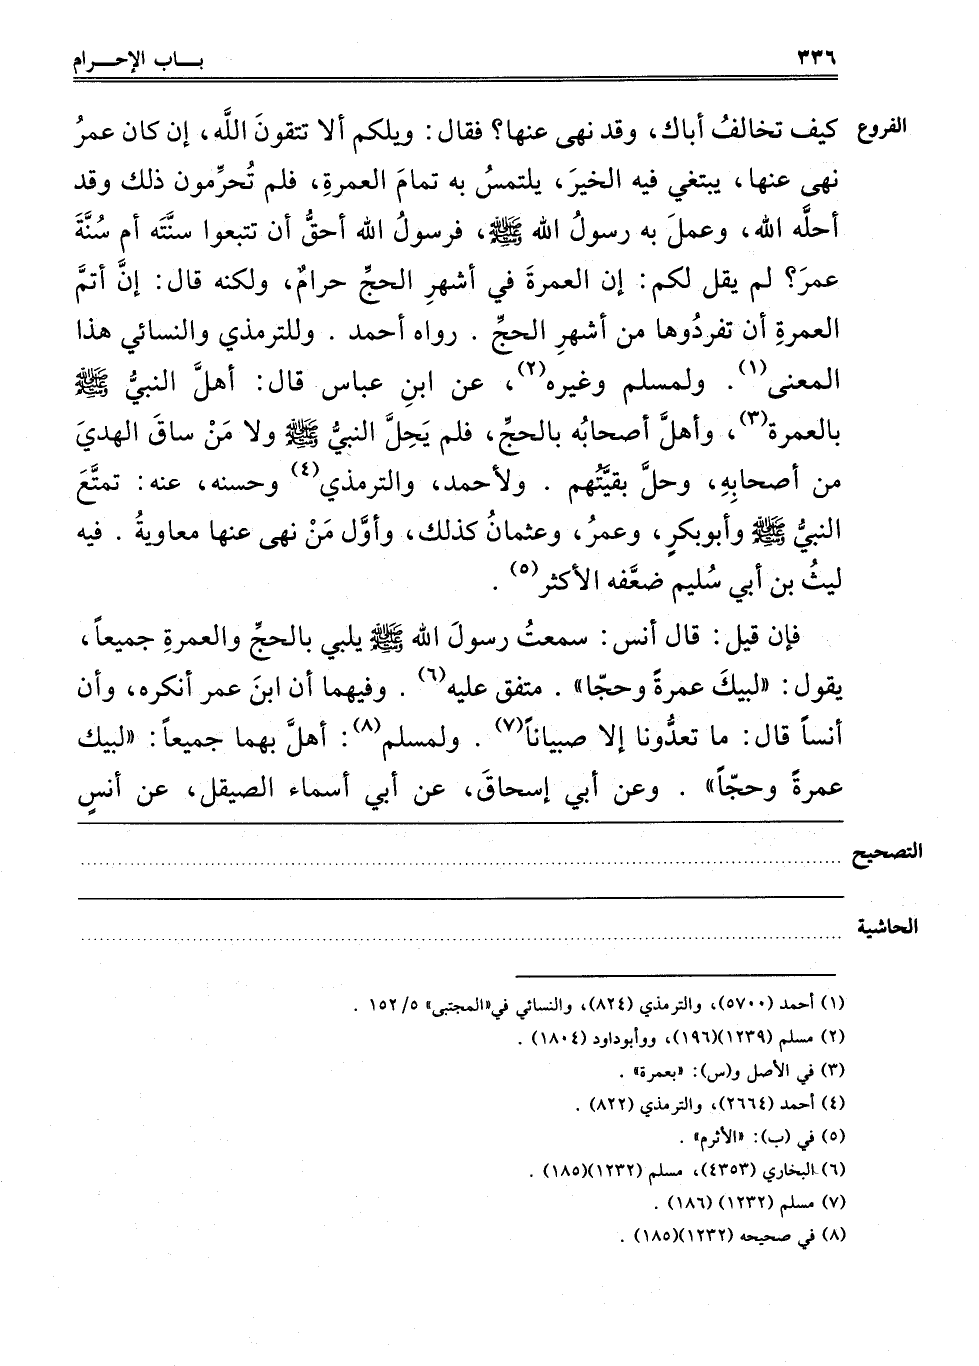 ٣٣٦
بــاب الإحــرام
الفروع
كيف تخالفُ أباك، وقد نهى عنها؟ فقال: ويلكم ألا تتقونَ اللَّه، إن كان عمرُ
نهى عنها، يبتغي فيه الخيرَ، يلتمسُ به تمامَ العمرةِ، فلم تُحرِّمون ذلك وقد
أحلَّه الله، وعملَ به رسولُ الله ﷺ، فرسولُ الله أحقُّ أن تتبعوا سنَّته أم سُنَّةَ
عمرَ؟ لم يقل لكم: إن العمرةَ في أشهرِ الحجِّ حرامٌ، ولكنه قال: إنَّ أتمَّ
العمرةِ أن تفردُوها من أشهرِ الحجِّ . رواه أحمد . وللترمذي والنسائي هذا
المعنى(١). ولمسلم وغيره(٢)، عن ابنِ عباس قال: أهلَّ النبيُّ ﷺ
بالعمرة(٣)، وأهلَّ أصحابُه بالحجِّ، فلم يَحِلَّ النبيُّ ﷺ ولا مَنْ ساقَ الهديَ
من أصحابِهِ، وحلَّ بقيَّتُهم . ولأحمد، والترمذي(٤) وحسنه، عنه: تمتَّعَ
النبيُّ ﷺ وأبوبكرٍ، وعمرُ، وعثمانُ كذلك، وأوَّل مَنْ نهى عنها معاويةُ . فيه
ليثُ بن أبي سُليم ضعَّفه الأكثر(٥) .
فإن قيل: قال أنس: سمعتُ رسولَ الله ﷺ يلبي بالحجِّ والعمرةِ جميعاً،
يقول: «لبيكَ عمرةً وحجّا» . متفق عليه(٦) . وفيهما أن ابنَ عمر أنكره، وأن
أنساً قال: ما تعدُّونا إلا صبياناً(٧) . ولمسلم(٨): أهلَّ بهما جميعاً: «لبيك
عمرةً وحجّاً» . وعن أبي إسحاقَ، عن أبي أسماء الصيقل، عن أنسٍ
التصحيح
الحاشية
(١) أحمد (٥٧٠٠)، والترمذي (٨٢٤)، والنسائي في«المجتبى» ١٥٢/٥ .
(٢) مسلم (١٢٣٩)(١٩٦)، ووأبوداود (١٨٠٤) .
(٣) في الأصل و(س): «بعمرة» .
(٤) أحمد (٢٦٦٤)، والترمذي (٨٢٢) .
(٥) في (ب): «الأثرم» .
(٦) البخاري (٤٣٥٣)، مسلم (١٢٣٢)(١٨٥) .
(٧) مسلم (١٢٣٢) (١٨٦) .
(٨) في صحيحه (١٢٣٢)(١٨٥) .